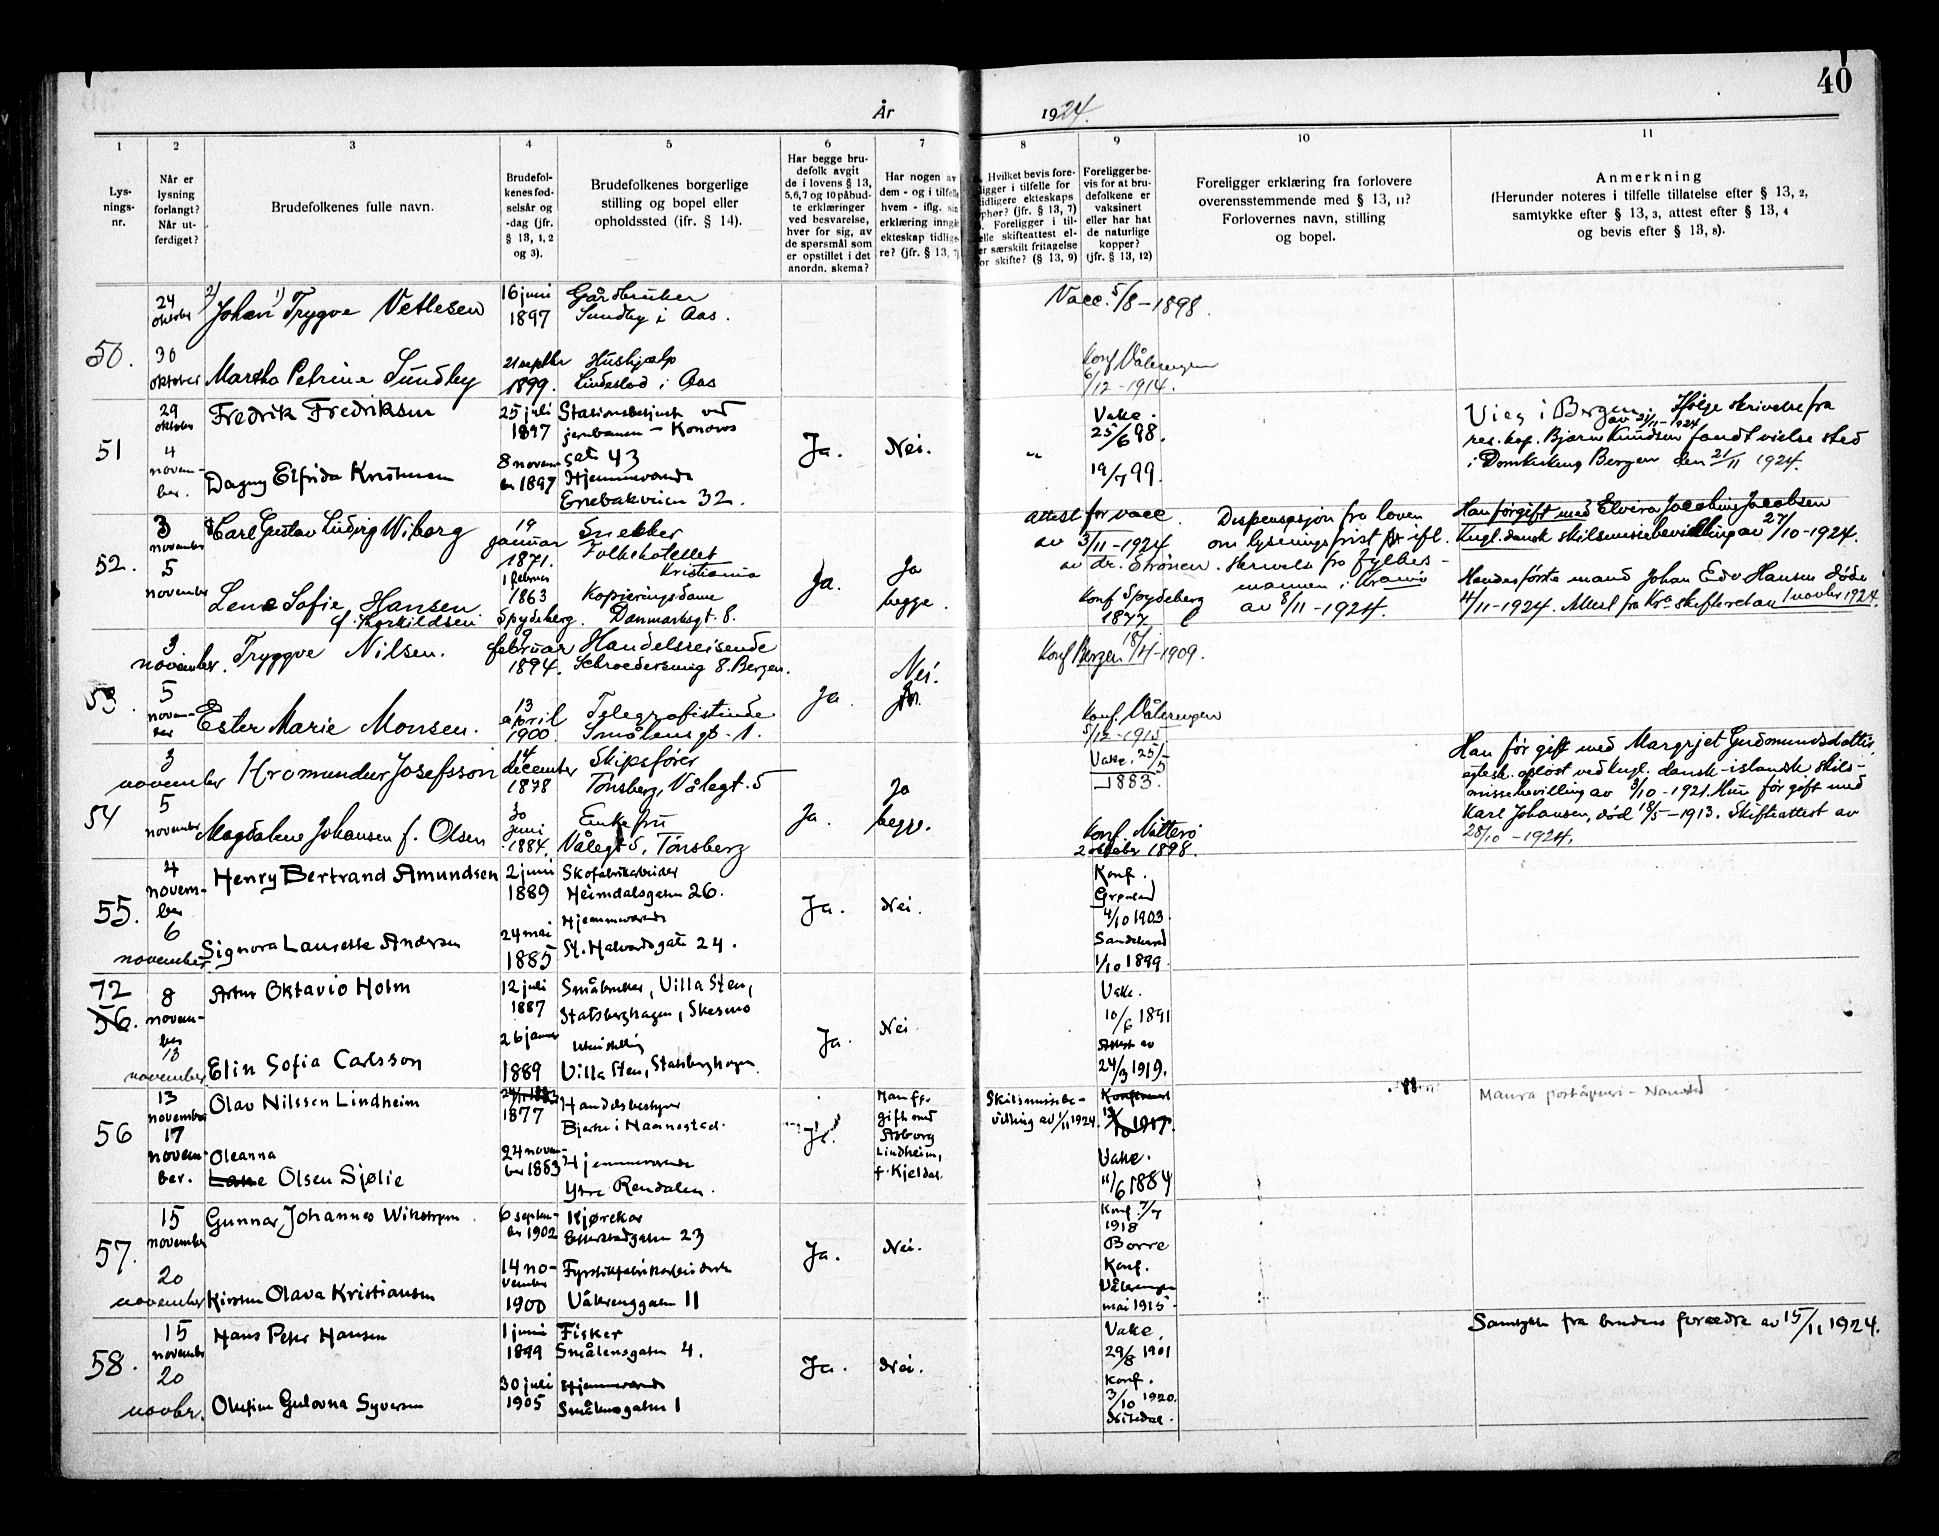 40
År 1924.
1 2 3 4 5 6 7 8 9 10 11
Lys-
nings-
nr.
Når er
lysning
forlangt?
Når ut-
ferdiget?
Brudefolkenes fulle navn.
Brudefol-
kenes fød-
selsår og
-dag (jfr.
§ 13, 1, 2
og 3).
Brudefolkenes borgerlige
stilling og bopel eller
opholdssted (ifr. § 14).
Har begge bru-
defolk avgit
de i lovens § 13,
5,6,7 og 10 påbud-
te erklæringer
ved besvarelse,
hver for sig, av
de spørsmål som
er opstillet i det
anordn. skema?
Har nogen av
dem - og i tilfelle
hvem - iflg. sin
erklæring inngåt
ekteskap tidlige-
re? (jfr. § 13, 7)
Hvilket bevis fore-
ligger i tilfelle for
tidligere ekteskaps
ophør? (jfr. § 13, 7)
Foreligger i til-
felle skifteattest el-
ler særskilt fritagelse
for skifte? (§ 13, 9)
Foreligger be-
vis for at bru-
defolkene er
vaksinert
eller har hat
de naturlige
kopper?
(jfr. § 13, 12)
Foreligger erklæring fra forlovere
overensstemmende med § 13, 11?
Forlovernes navn, stilling
og bopel.
Anmerkning
(Herunder noteres i tilfelle tillatelse efter § 13, 2,
samtykke efter § 13, 3, attest efter § 13, 4
og bevis efter § 13, 8).
50.
24
oktober
30
oktober
2) Johan 1) Trygve Vetlesen
16 juni
1897
Gårdbruker
Sundby i Aas.
Vacc. 5/8-1898.
Martha Petrine Sundby
21 septbr
1899.
Hushjælp
Lindestad i Aas
Konf Vålerengen
6/12-1914.
51
29
oktober
4
novem-
ber.
Fredrik Fredriksen
25 juli
1897
Stasionsbetjent ved
jernbanen - Konows
gate 43
Dagny Elfrida Kristensen
8 novem
ber 1897
Hjemmeværende
Enebakveien 32.
Ja.
Nei.
"
Vakc.
25/6 98.
19/7 99.
Viet i Bergen av 21/11-1924 Ifølge skrivelse fra
res. kap. Bjarne Knudsen fandt vielse sted
i Domkirken Bergen den 21/11 1924.
52.
3
november
5
november
Carl Gustav Ludvig Wiborg
19
januar
1871.
Snekker
Folkehotellet
Kristiania
Lene Sofie Hansen
f. Thorkildsen
1 februar
1863
Spydeberg.
Kopieringsdame
Danmarksgt. 8.
Ja.
Ja
begge.
Attest for vacc.
av 3/11-1924
av dr. Strönen.
Konf Spydeberg
1877
Dispensasjon fra loven
om lysningsfrist ifl.
skrivelse fra fylkes-
mannen i Kr.ania
av 8/11-1924.
Han før gift med Elvira Jacobine Jacobsen
Kngl. dansk skilsmissebevilling av 27/10-1924.
Hendes første mand Johan Edv Hansen døde
4/11-1924. Attest fra Kra. skifteret av 1 novbr 1924.
53
3
november.
5
novem-
ber
Tryggve Nilsen.
9
februar
1894.
Handelsreisende
8. Bergen.
Ester Marie Monsen.
13
april
1900.
Telegrafistinde
Smålensgt. 1.
Ja.
Nei.
Konf Bergen 18/4-1909.
Konf. Vålerengen
5/12-1915
54
3
november
5
november
Hromundur Josefsson
14
december
1878
Skipsfører
Tønsberg, Vålegt. 5
Magdalene Johansen f. Olsen
30
juni
1884.
Enkefru
Vålegt 5, Tønsberg
Ja.
Ja
begge.
Vakc. 25/5
1883.
Konf. Nøtterø
2 oktober 1898.
Han før gift med Margrjet Gudmundsdottir,
ektesk. opløst ved kngl. dansk-islandsk skils-
missebevilling av 3/10-1921. Hun før gift med
Karl Johansen, død 18/5-1913. Skifteattest av
28/10-1924.
55.
4
novem-
ber
6
november
Henry Bertrand Amundsen
2 juni
1889
Skofabrikarbeider
Heimdalsgaten 26.
Signora Laurette Andersen
24 mai
1885
Hjemmeværende
St. Halvardsgate 24.
Ja.
Nei.
Konf.
Grønland
4/10 1903.
Sandeherred
1/10 1899.
72
56.
8
novem-
ber
13
november
Artur Oktavio Holm
12 juli
1887
Småbruker, Villa Sten,
Statsberghagen, Skesmo
Elin Sofia Carlsson
26 januar
1889
Uten stilling
Villa Sten, Statsberghagen
Ja.
Nei
Vakc.
10/6 1891
Attest av
24/3 1919.
56
13
november
17
novem-
ber.
Olav Nilssen Lindheim
24/11 1883
1877
Handelsbestyrer
Bjerke i Nannestad.
Oleanna
Olsen Sjølie
24 novem-
ber 1883
Hjemmeværende
Ytre Rendalen.
Ja.
Man før
gift med
Asborg
Lindheim,
f. Kjeldal.
Skilsmissebe-
vilning av 1/11 1924.
Konfirmert
1917.
Vakc.
11/6 1884
Maura poståpneri - Nannestad
57.
15
november
20
november
Gunnar Johannes Wikstrøm
6 septem-
ber 1902
Kjørekar
Etterstadgaten 23
Kirsten Olava Kristiansen
14 no-
vember
1900
Fyrstikfabrikarbeiderske
Vålerenggaten 11
Ja.
Nei.
Konf. 7/7
1918
Borre
Konf.
Vålerengen
mai 1915.
58.
15
november
20
novbr.
Hans Peter Hansen
1 juni
1899
Fisker
Smålensgaten 4.
Olufine Gulovna Syversen
30 juli
1905
Hjemmeværende
Smålensgaten 1
Ja.
Nei.
Vakc.
29/8 1901
Konf.
3/10 1920.
Nittedal.
Samtykke fra brudens foreldre av 15/11 1924.